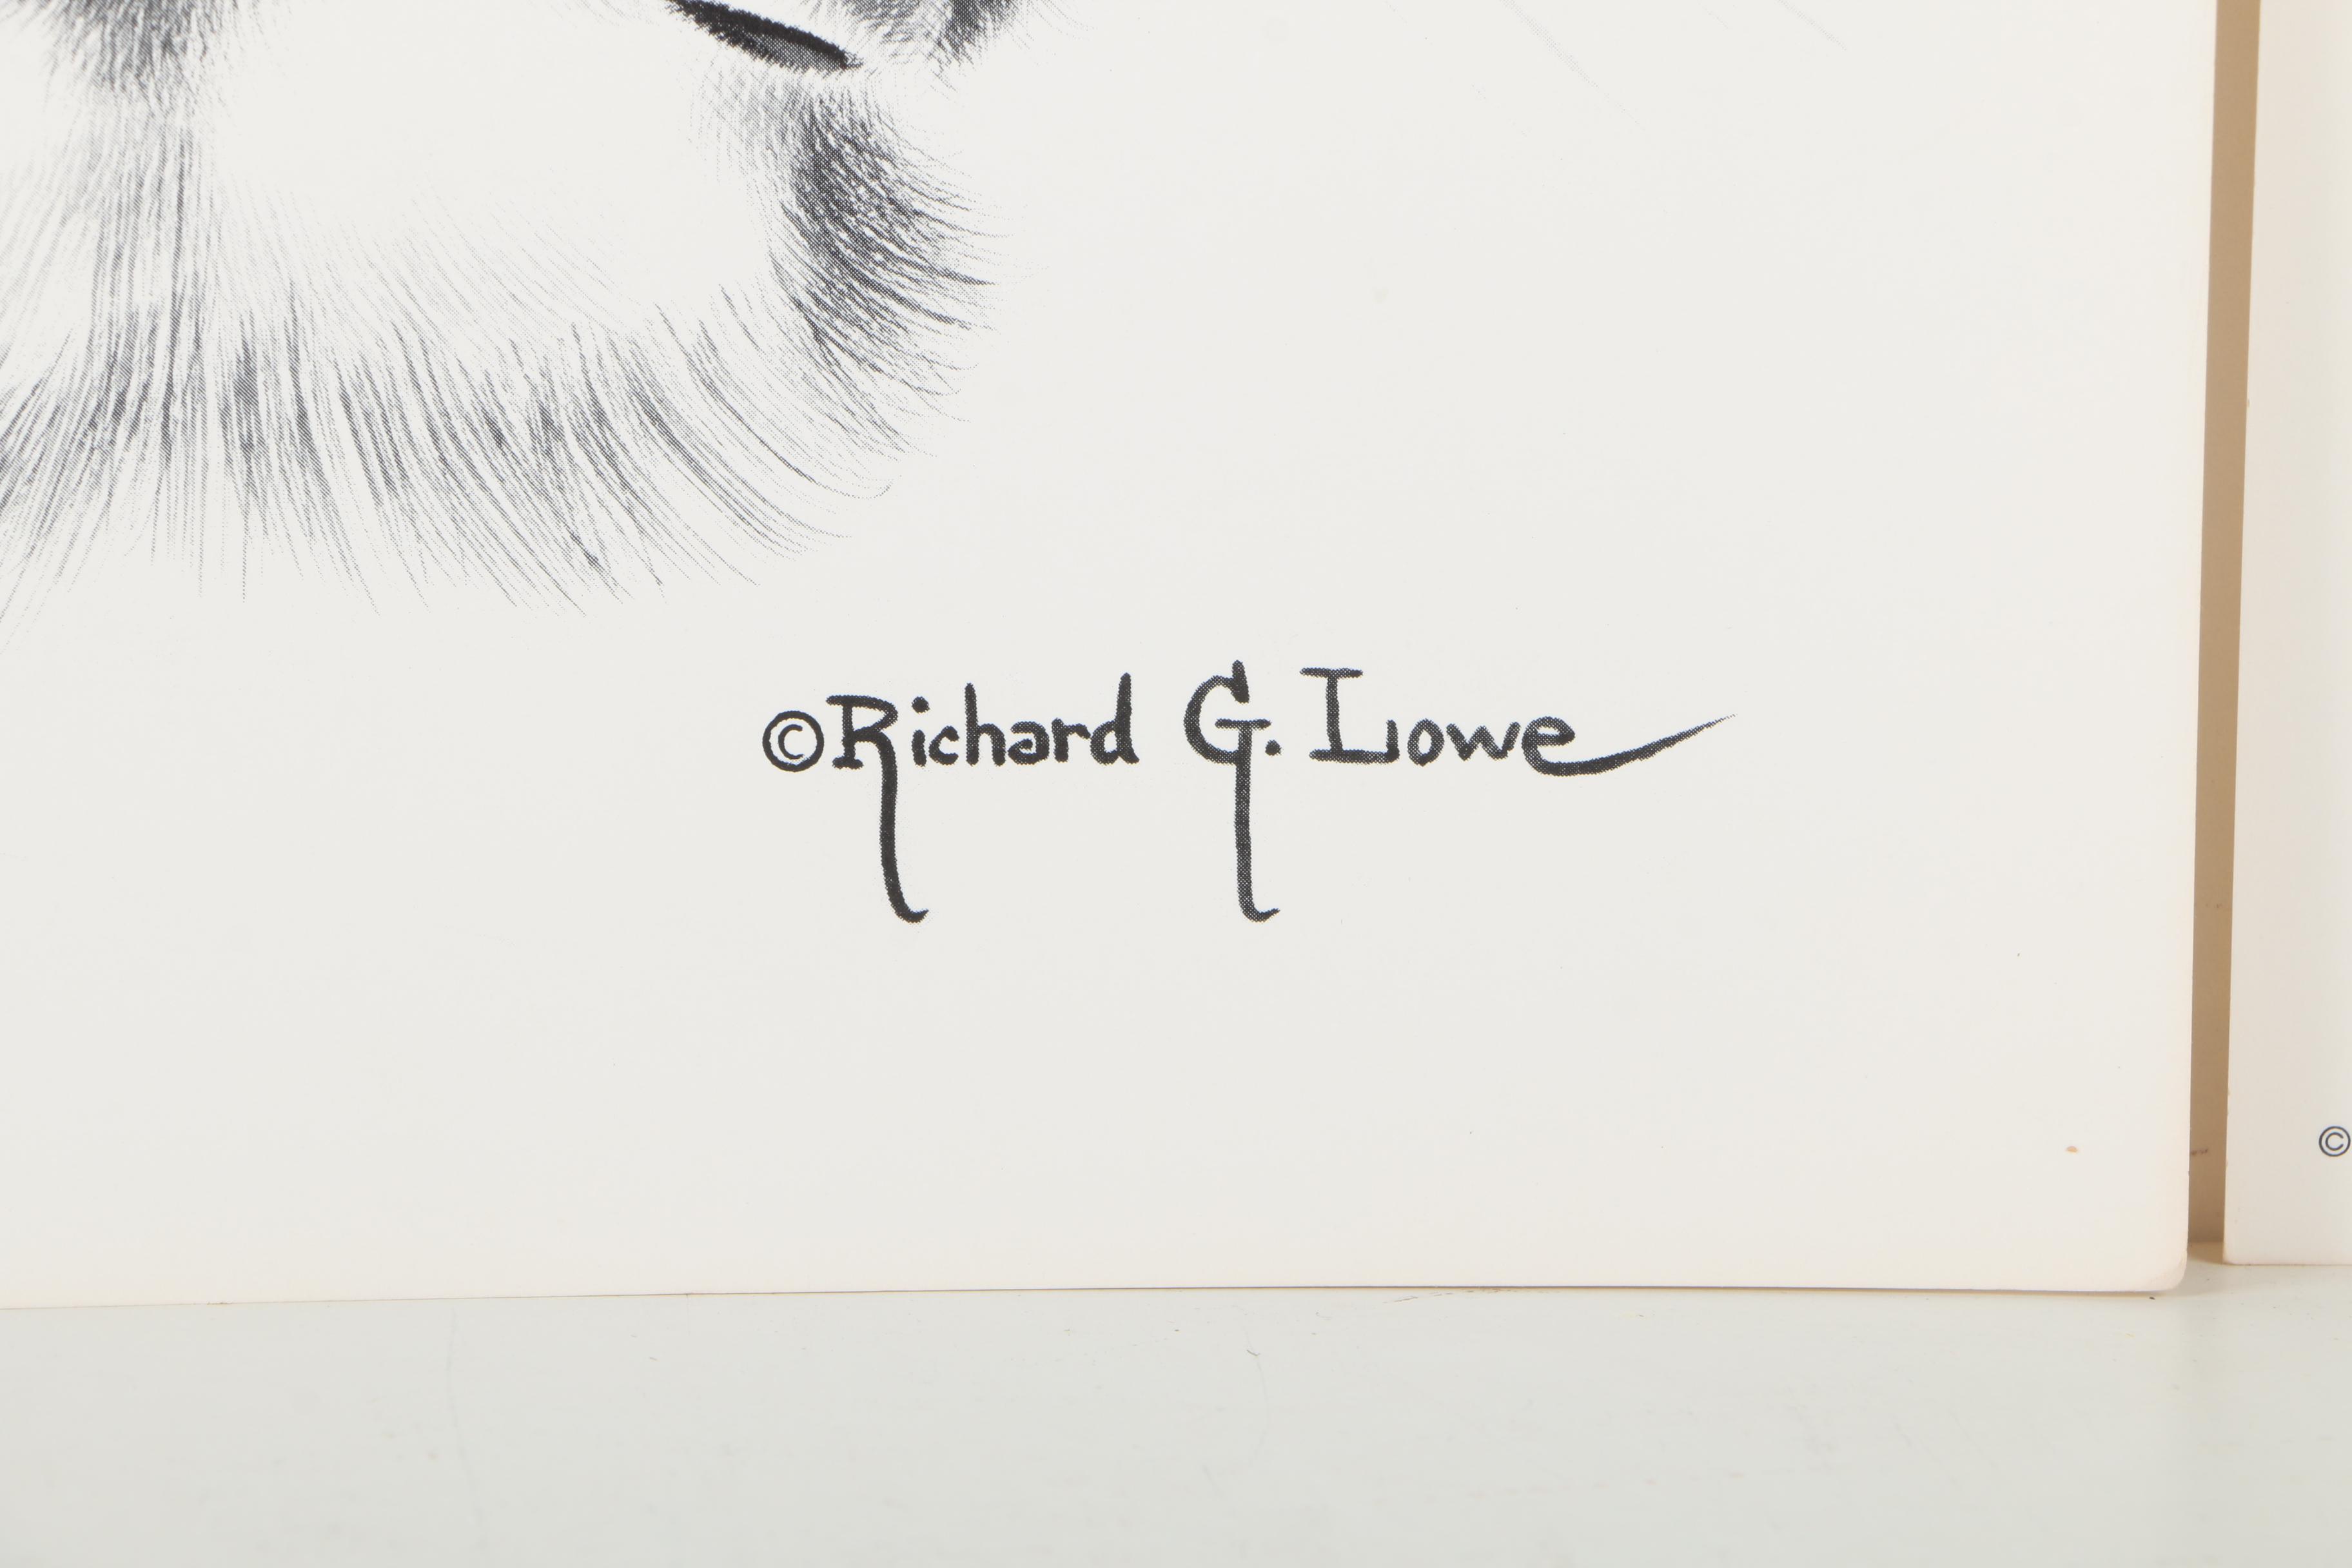 ©Richard G. Lowe
©